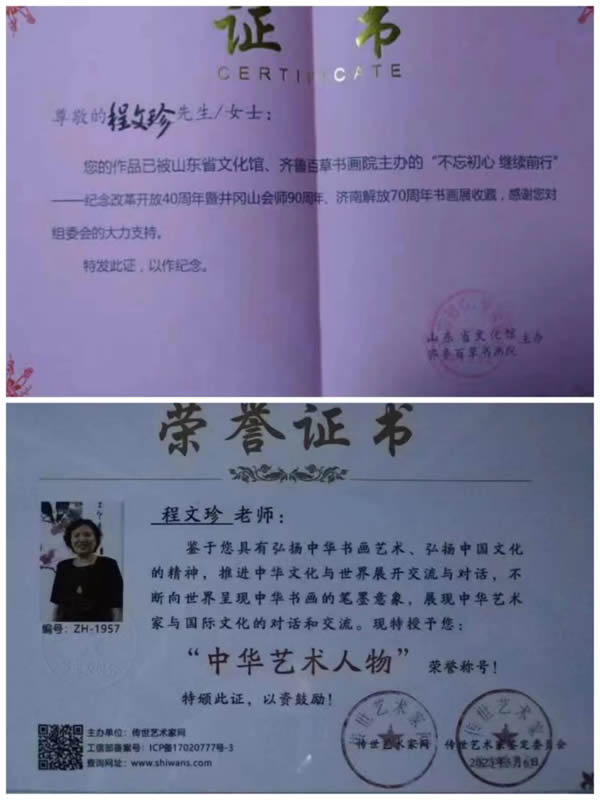 证书
CERTIFICATE
尊敬的程文珍先生/女士：
您的作品已被山东省文化馆、齐鲁百草书画院主办的“不忘初心 继续前行”
——纪念改革开放40周年暨井冈山会师90周年、济南解放70周年书画展收藏，感谢您对
组委会的大力支持。
特发此证，以作纪念。
山东省文化馆
齐鲁百草书画院
主办
荣誉证书
程文珍老师：
鉴于您具有弘扬中华书画艺术、弘扬中国文化
的精神，推进中华文化与世界展开交流与对话，不
断向世界呈现中华书画的笔墨意象，展现中华艺术
家与国际文化的对话和交流。现特授予您：
“中华艺术人物”荣誉称号！
特颁此证，以资鼓励！
编号：ZH-1957
主办单位：传世艺术家网
工信部备案号：ICP备17020777号-3
查询网址：www.shiwans.com
传世艺术家网
传世艺术家网
传世艺术家鉴定委员会